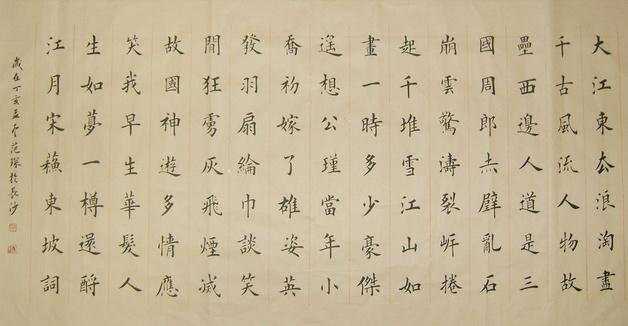 大江東去浪淘盡
千古風流人物故
壘西邊人道是三
國周郎赤壁亂石
崩雲驚濤裂岸捲
起千堆雪江山如
畫一時多少豪傑
遙想公瑾當年小
喬初嫁了雄姿英
發羽扇綸巾談笑
間狂虜灰飛煙滅
故國神遊多情應
笑我早生華髮人
生如夢一樽還酹
江月宋蘇東坡詞
歲在丁亥孟冬范琛於長沙